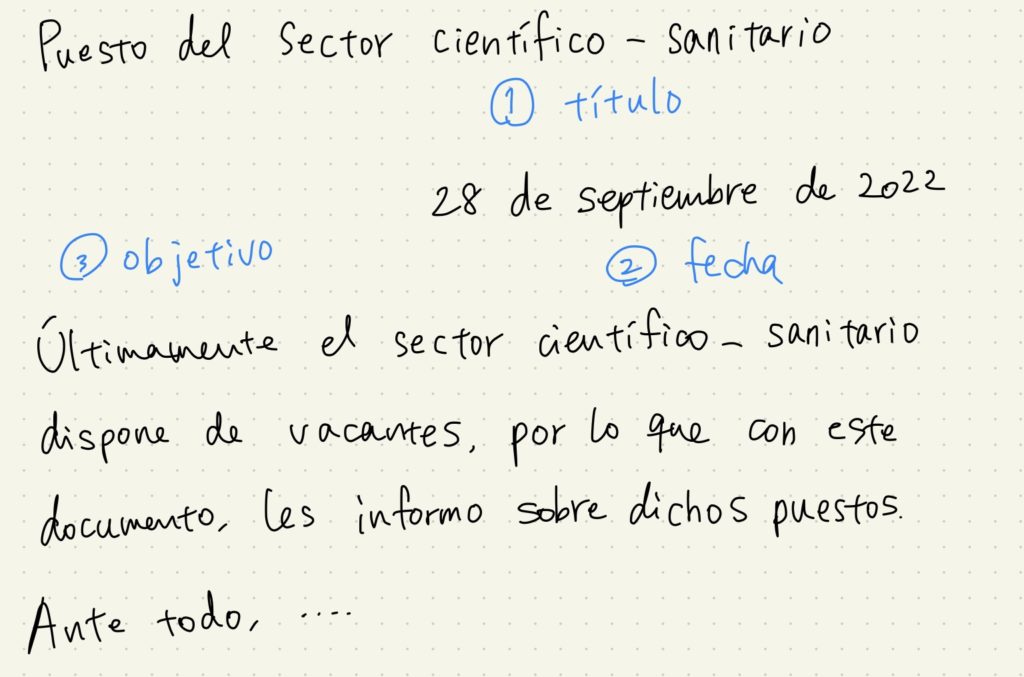 Puesto del sector científico - sanitario
① título
28 de septiembre de 2022
③ objetivo
② fecha
Últimamente el sector científico - sanitario
dispone de vacantes, por lo que con este
documento, les informo sobre dichos puestos.
Ante todo, ....